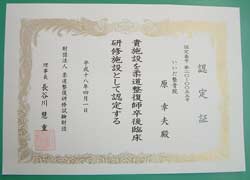 認定証
いいだ整骨院
原 幸夫殿
貴施設を柔道整復師卒後臨床
研修施設として認定する
平成十八年四月一日
財団法人 柔道整復研修試験財団
理事長 長谷川 慧重